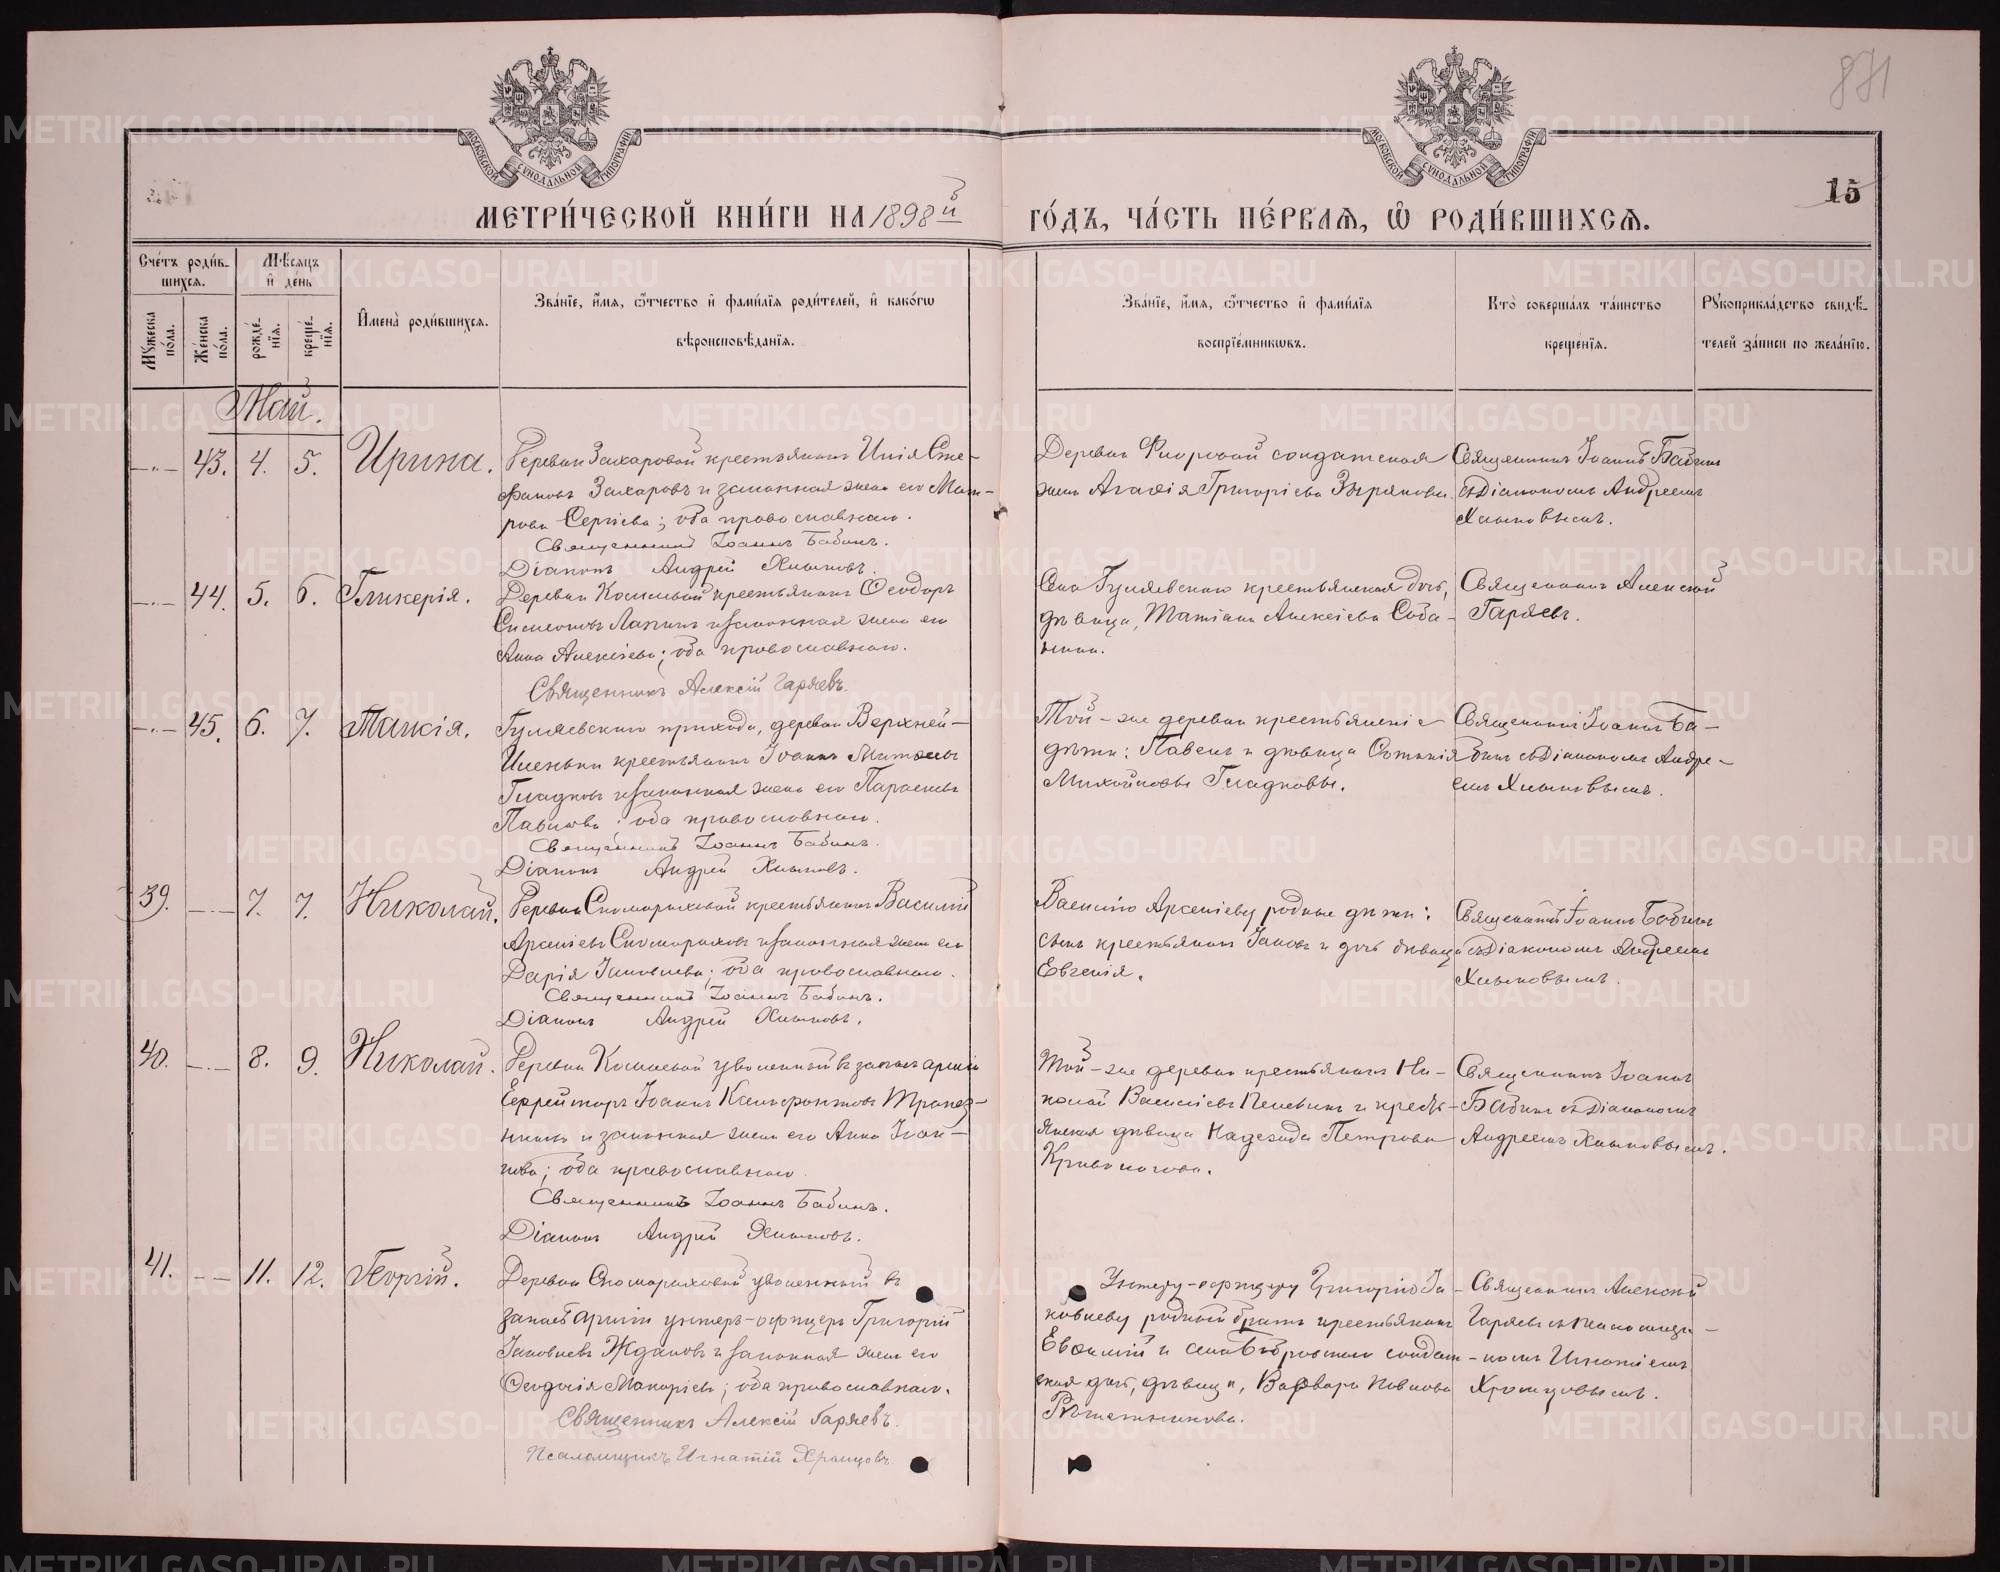 871
МОСКОВСКОЙ СѴНОДАЛЬНОЙ ТИПОГРАФІИ
МОСКОВСКОЙ СѴНОДАЛЬНОЙ ТИПОГРАФІИ
15
МЕТРИ́ЧЕСКОЙ КНИ́ГИ НА 1898й
ГО́ДЪ, ЧА́СТЬ ПЕ́РВАЯ, Ѡ РОДИ́ВШИХСЯ.
Сче́тъ роди́в-
шихся.
Мѣ́сяцъ
и҆ де́нь
Мꙋ́жеска по́ла.
Же́нска по́ла.
рожде́-нїя.
креще́-нїя.
И҆мена̀ роди́вшихся.
Зва́нїе, и҆́мя, ѻ҆́тчество и҆ фами́лїя роди́телей, и҆ како́гѡ
вѣроисповѣ́данїя.
Зва́нїе, и҆́мя, ѻ҆́тчество и҆ фами́лїя
воспрїе́мникѡвъ.
Кто̀ соверша́лъ та́инство
креще́нїя.
Рꙋкоприкла́дство свидѣ́-
телей за́писи по жела́нїю.
Май.
43. 4. 5. Ирина.
Деревни Захаровой крестьянинъ Илія Сте-
фановъ Захаровъ и законная жена его Мат-
рона Сергіева; оба православнаго.
Священникъ Іоаннъ Бабинъ.
Діаконъ Андрей Хлыновъ.
солдатская
жена Агаѳія Григоріева Зырянова.
Священникъ Іоаннъ Бабинъ
съ Діакономъ Андреемъ
Хлыновымъ.
44. 5. 6. Гликерія.
крестьянинъ Ѳеодоръ
Симеоновъ Лапинъ и законная жена его
Анна Алексіева; оба православнаго.
Священникъ Алексій Гаряевъ.
Села Гуляевскаго крестьянская дочь,
дѣвица, Татіана Алексіева Соба-
нина.
Священникъ Алексій
Гаряевъ.
45. 6. 7. Таисія.
Гуляевскаго прихода, деревни Верхней-
крестьянинъ Іоаннъ
Гладковъ и законная жена его Параскева
Павлова; оба православнаго.
Священникъ Іоаннъ Бабинъ.
Діаконъ Андрей Хлыновъ.
Той-же деревни крестьянскіе
дѣти: Павелъ и дѣвица
Михайловы Гладковы.
Священникъ Іоаннъ Ба-
бинъ съ Діакономъ Андре-
емъ Хлыновымъ.
39. 7. 7. Николай.
Деревни Скомороховой крестьянинъ Василій
Арсеніевъ Скомороховъ и законная жена его
Дарія Іаковлева; оба православнаго.
Священникъ Іоаннъ Бабинъ.
Діаконъ Андрей Хлыновъ.
Василію Арсеніеву родные дѣти:
сынъ крестьянинъ Іаковъ и дочь дѣвица
Евгенія.
Священникъ Іоаннъ Бабинъ
съ Діакономъ Андреемъ
Хлыновымъ.
40. 8. 9. Николай.
Деревни уволенный въ запасъ арміи
Ефрейторъ Іоаннъ Ксенофонтовъ Трапез-
никовъ и законная жена его Анна Іоан-
нова; оба православнаго.
Священникъ Іоаннъ Бабинъ.
Діаконъ Андрей Хлыновъ.
Той-же деревни крестьянинъ Ни-
колай Василіевъ и кресть-
янская дѣвица Надежда Петрова
Кривоногова.
Священникъ Іоаннъ
Бабинъ съ Діакономъ
Андреемъ Хлыновымъ.
41. 11. 12. Георгій.
Деревни Скомороховой уволенный въ
запасъ арміи унтеръ-офицеръ Григорій
Іаковлевъ Ждановъ и законная жена его
Ѳеодосія Макаріева; оба православнаго.
Священникъ Алексій Гаряевъ.
Псаломщикъ Игнатій Храмцовъ.
Унтеръ-офицеру Григорію Іа-
ковлеву родный братъ крестьянинъ
Евѳимій и села солдат-
ская дочь, дѣвица, Варвара
Рѣшетникова.
Священникъ Алексій
Гаряевъ съ Псаломщи-
комъ Игнатіемъ
Храмцовымъ.